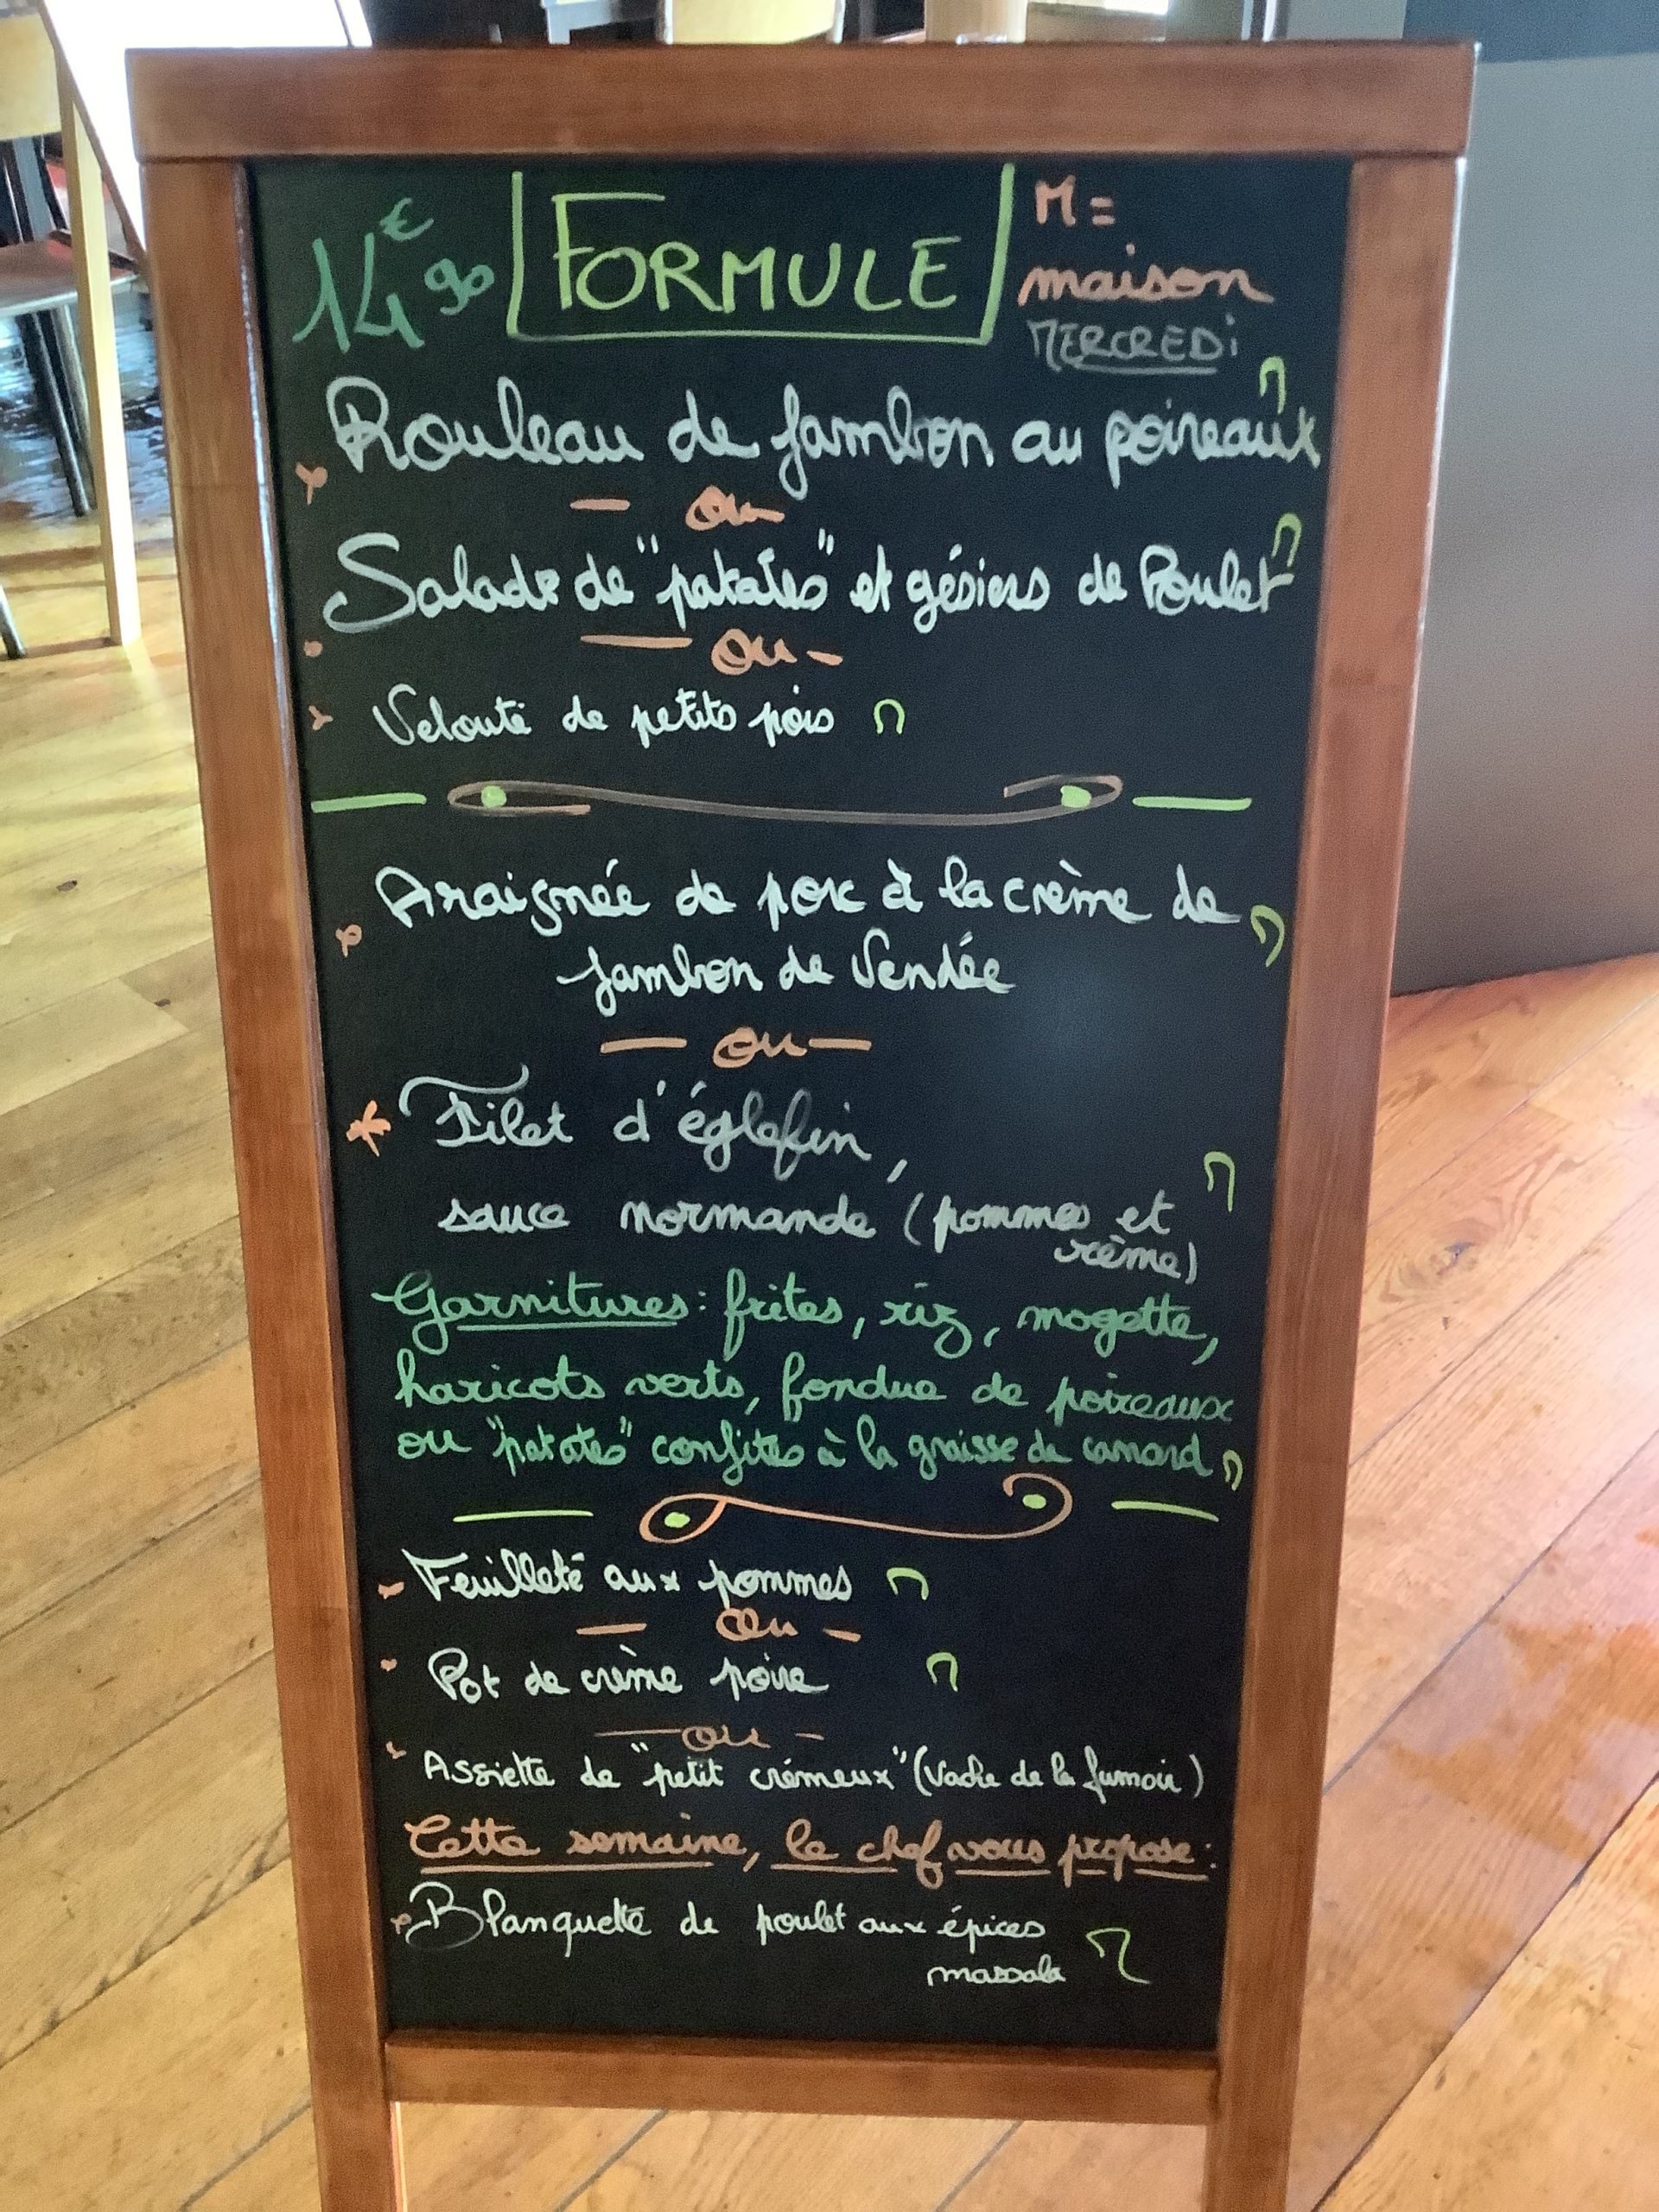 14€90 FORMULE M =
maison
MERCREDI
Rouleau de jambon au poireaux M
- ou -
Salade de "patates" et gésiers de Poulet M
- ou -
Velouté de petits pois M
Araignée de porc à la crème de M
jambon de Vendée
- ou -
* Filet d'églefin,
sauce normande (pommes et M
crème)
Garnitures : frites, riz, mogette,
haricots verts, fondue de poireaux
ou "patates" confites à la graisse de canard M
Feuilleté aux pommes M
- ou -
Pot de crème poire M
- ou -
Assiette de "petit crémeux" (Vache de la fumoir)
Cette semaine, le chef vous propose :
Blanquette de poulet aux épices
massala M